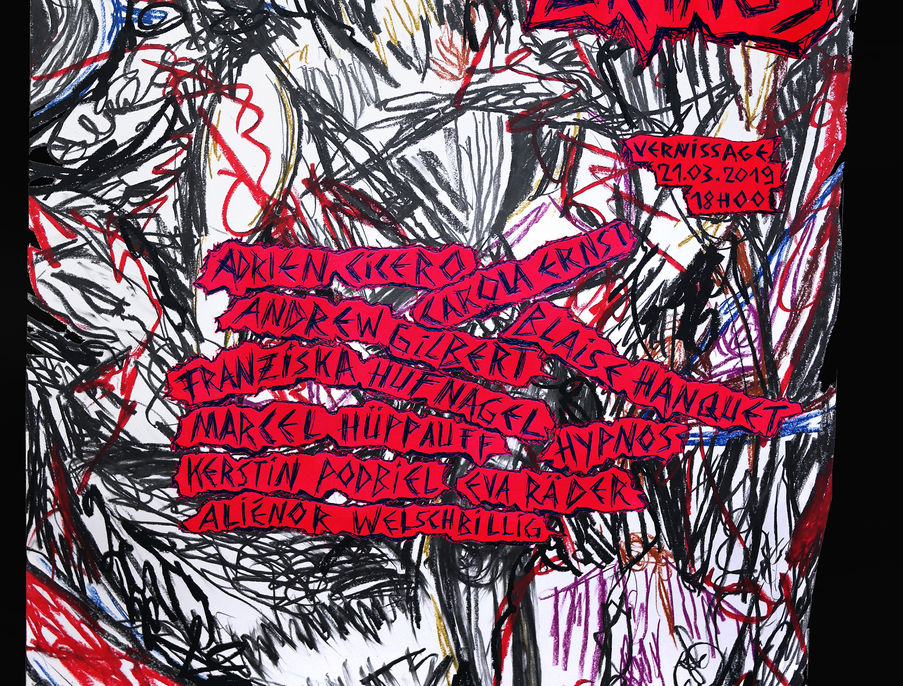 VERNISSAGE
21.03.2019
18H00
ADRIEN CICERO
CAROLA ERNST
ANDREW GILBERT
BLAISE HANQUET
FRANZISKA HUFNAGEL
MARCEL HÜPPAUFF
HYPNOS
KERSTIN PODBIEL
EVA RÄDER
ALIÉNOR WELSCHBILLIG